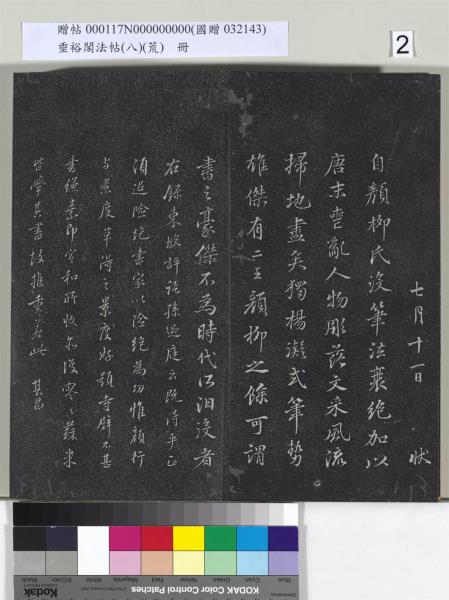 贈帖 000117N000000000(國贈 032143)
垂裕閣法帖(八)(荒) 冊
2
七月十一日 狀
自顏柳氏沒筆法衰絕加以
唐末喪亂人物彫落文采風流
掃地盡矣獨楊凝式筆勢
雄傑有二王顏柳之餘可謂
書之豪傑不為時代所汩沒者
右錄東坡評語孫過庭云既得平正
須追險絕書家以險絕為功惟顏行
與景度草得之景度好題寺壁不甚
書縑素即宣和所收亦復寥寥蘇米
皆學其書故推重若此 其昌
Blue Cyan Green Yellow Red Magenta White 3/Color Black
Kodak Color Control Patches
Kodak